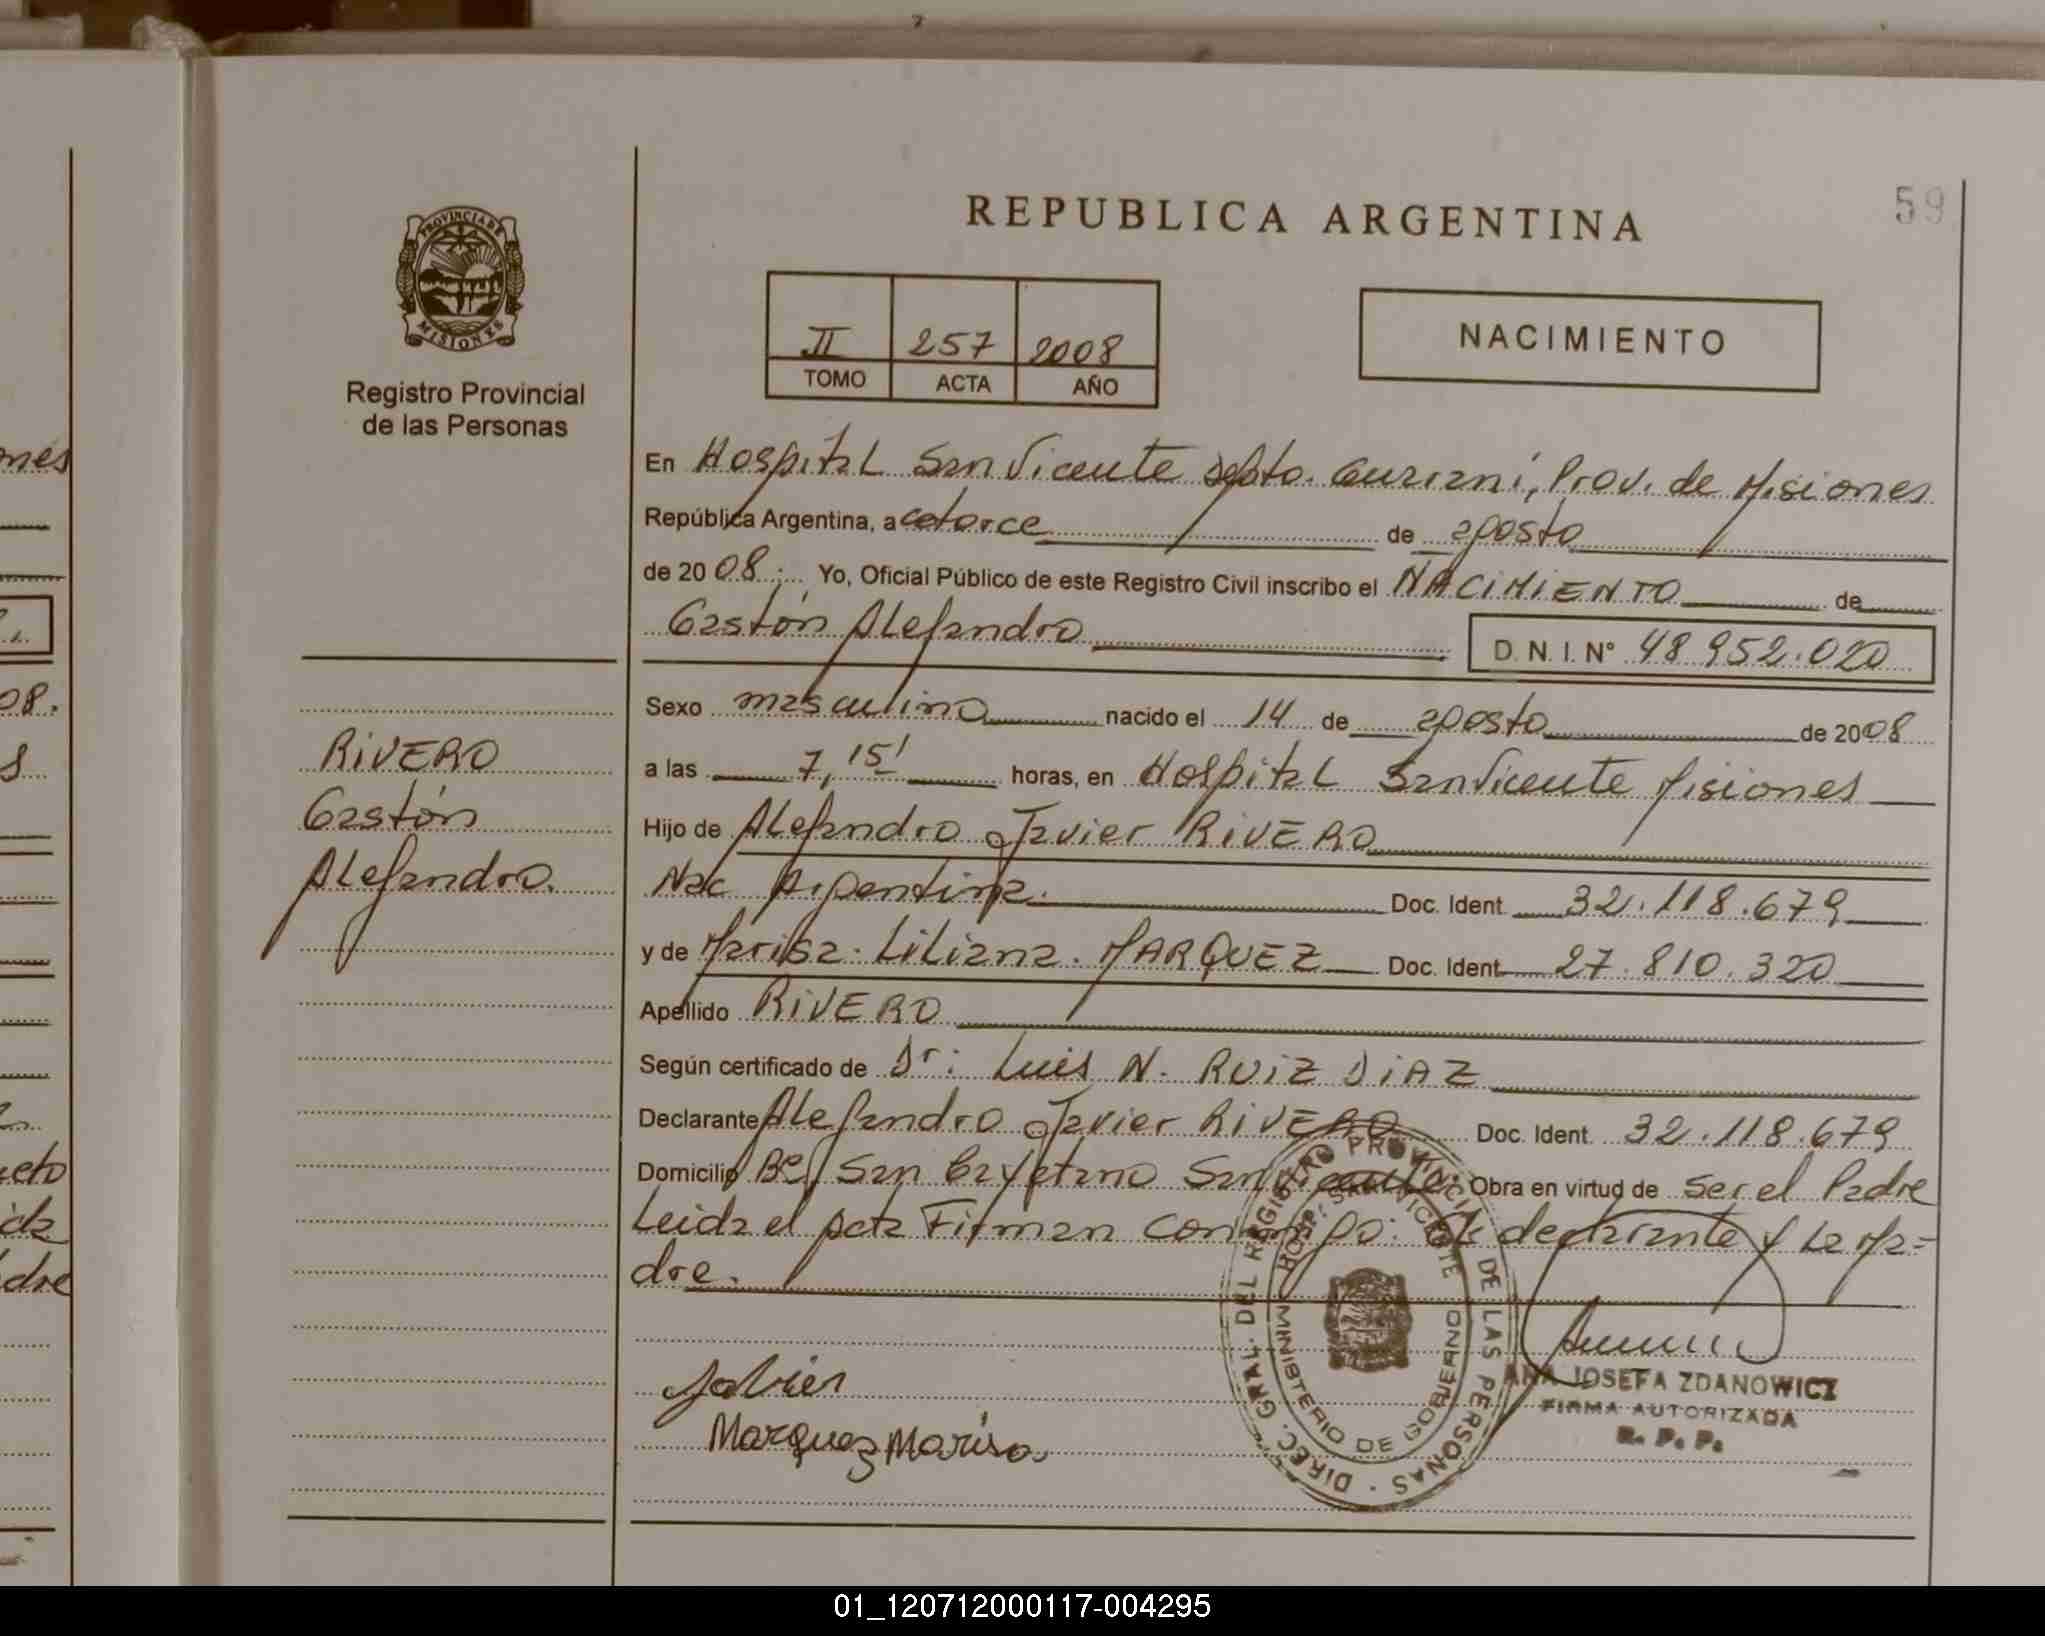 REPUBLICA ARGENTINA
59
PROVINCIA DE
MISIONES
Registro Provincial
de las Personas
II 257 2008
TOMO ACTA AÑO
NACIMIENTO
En Hospital San Vicente Depto. Guaraní, Prov. de Misiones
República Argentina, a catorce de agosto
de 2008. Yo, Oficial Público de este Registro Civil inscribo el NACIMIENTO de
Gastón Alejandro
D.N.I.N° 48.952.020
Sexo masculino nacido el 14 de agosto de 2008
a las 7,15' horas, en Hospital San Vicente Misiones
Hijo de Alejandro Javier RIVERO
Nac Argentina. Doc. Ident. 32.118.679
y de Marisa Liliana MARQUEZ Doc. Ident. 27.810.320
Apellido RIVERO
Según certificado de Dr: Luis N. RUIZ DIAZ
Declarante Alejandro Javier RIVERO Doc. Ident. 32.118.679
Domicilio Bº San Cayetano San Vicente. Obra en virtud de ser el Padre
Leida el Acta Firman conmigo: el declarante y la Ma=
dre.
RIVERO
Gastón
Alejandro.
Javier
Marquez Marisa.
DIREC. GRAL. DEL REGISTRO PROVINCIAL DE LAS PERSONAS
HOSP. SAN VICENTE
MINISTERIO DE GOBIERNO
ANA JOSEFA ZDANOWICZ
FIRMA AUTORIZADA
R. P. P.
nes
08.
eto
da
dre
01_120712000117-004295